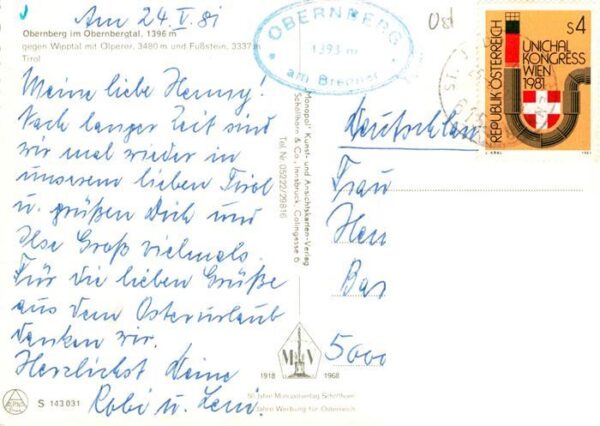 Am 24. V. 81
Obernberg im Obernbergtal, 1396 m
gegen Wipptal mit Olperer, 3480 m und Fußstein, 3337 m
Tirol
Meine liebe Henny!
Nach langer Zeit sind
wir mal wieder in
unserem lieben Tirol
u. grüßen Dich und
Ilse Groß vielmals.
Für die lieben Grüße
aus dem Osterurlaub
danken wir.
Herzlichst Deine
Robi u. Leni.
S 143031
OBERNBERG
1393 m
am Brenner
Monopol Kunst- und Ansichtskarten-Verlag
Schöllhorn & Co., Innsbruck, Colingasse 6
Tel. Nr. 05222/29816
1918 1968
50 Jahre Monopolverlag Schöllhorn
Jahre Werbung für Österreich
S4
UNICHAL
KONGRESS
WIEN
1981
REPUBLIK ÖSTERREICH
Deutschland
Frau
Hen
Bas
5000